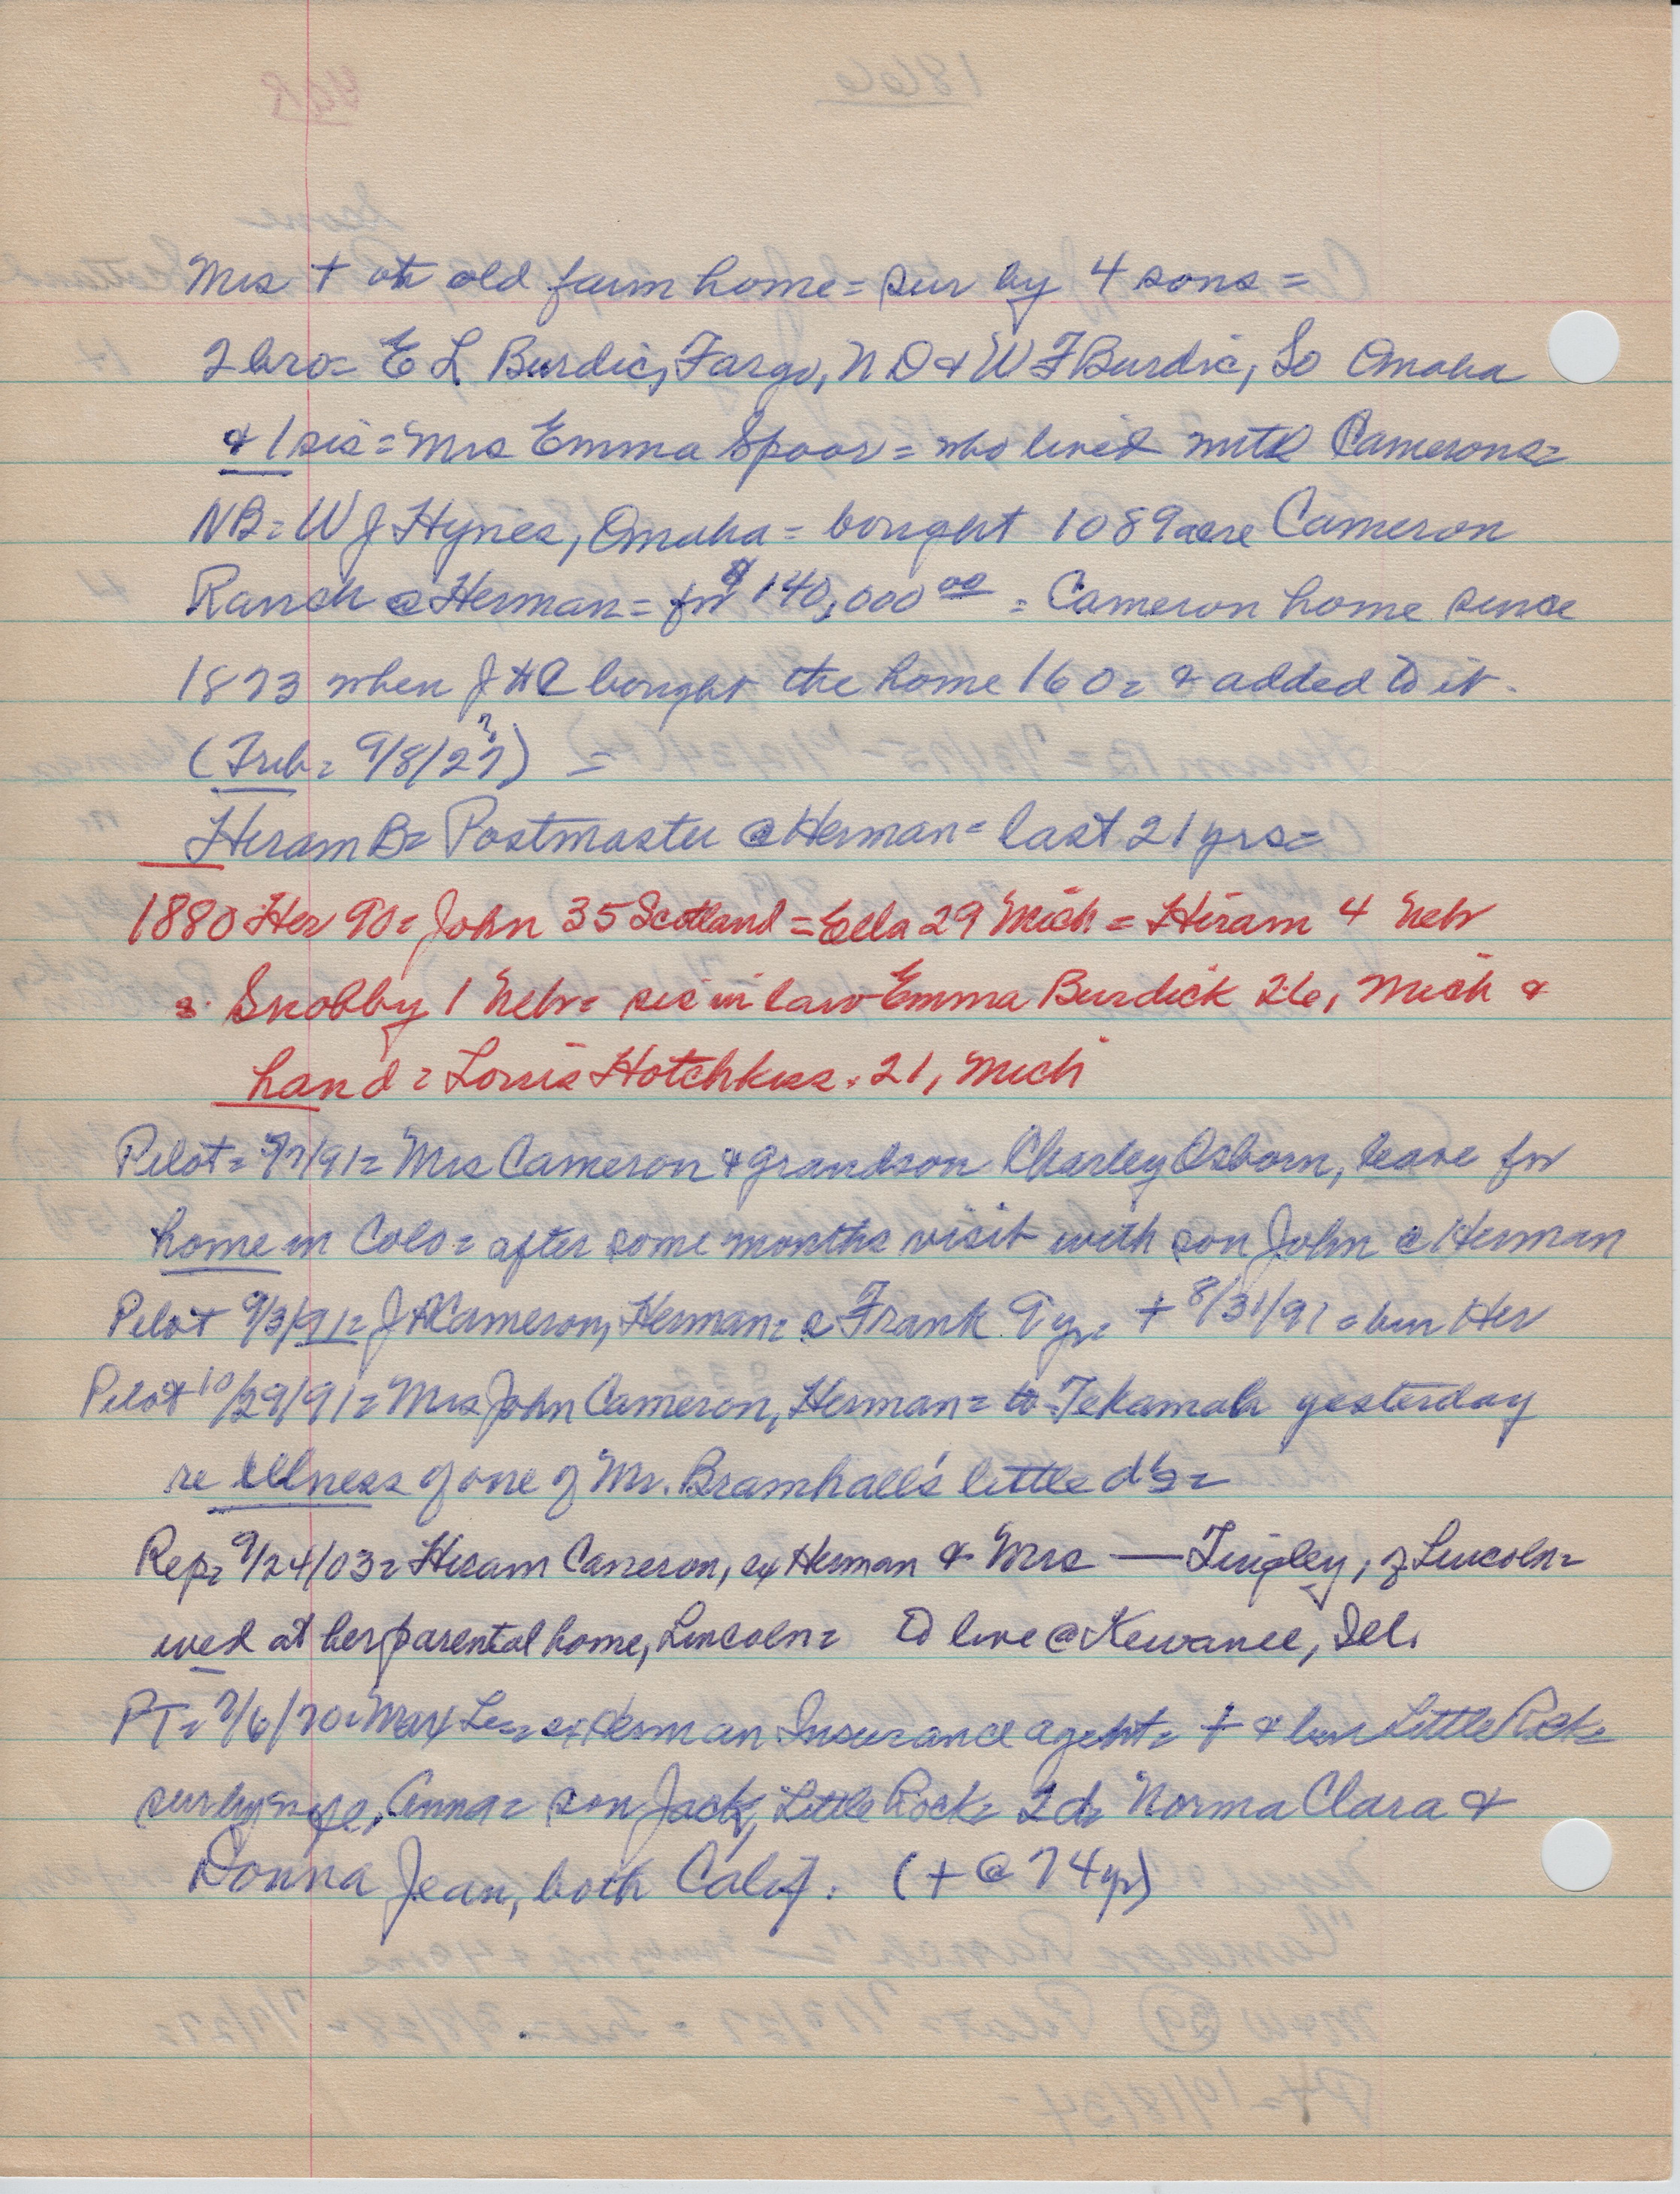 Mrs + at old farm home = sur by 4 sons =
2 bro = E L Burdic, Fargo, N D & W F Burdic, So Omaha
& 1 sis = Mrs Emma Spoor = who lived with Camerons =
NB = W J Hynes, Omaha = bought 1089 acre Cameron
Ranch @ Herman = for $140,000 00 = Cameron home since
1873 when J H C bought the home 160 = & added to it.
(Trib = 9/8/27?) =
Hiram B = Postmaster @ Herman = last 21 yrs =
1880 Her 90 = John 35 Scotland = Ella 29 Mich = Hiram 4 Nebr
= Snobby 1 Nebr = sis in law Emma Burdick 26, Mich &
hand = Louis Hotchkiss . 21, Mich
Pilot = Mrs Cameron & grandson Charley Osborn, leave for
home in Colo = after some months visit with son John @ Herman
Pilot 9/3/91 = J H Cameron, Herman = c Frank 9 yr = + 8/31/91 = bur Her
Pilot 10/29/91 = Mrs John Cameron, Herman = to Tekamah yesterday
re illness of one of Mr. Bramhall's little d's =
Rep = 9/24/03 = Hiram Cameron, ex Herman & Mrs — Tingley, of Lincoln =
wed at her parental home, Lincoln = to live @ Kewanee, Ill.
PT = 7/6/70 = Max Lee = ex Herman Insurance agent = + & bur Little Rock =
sur by wife, Anna = son Jack, Little Rock = 2 d = Norma Clara &
Donna Jean, both Calif. (+ @ 74 yr)